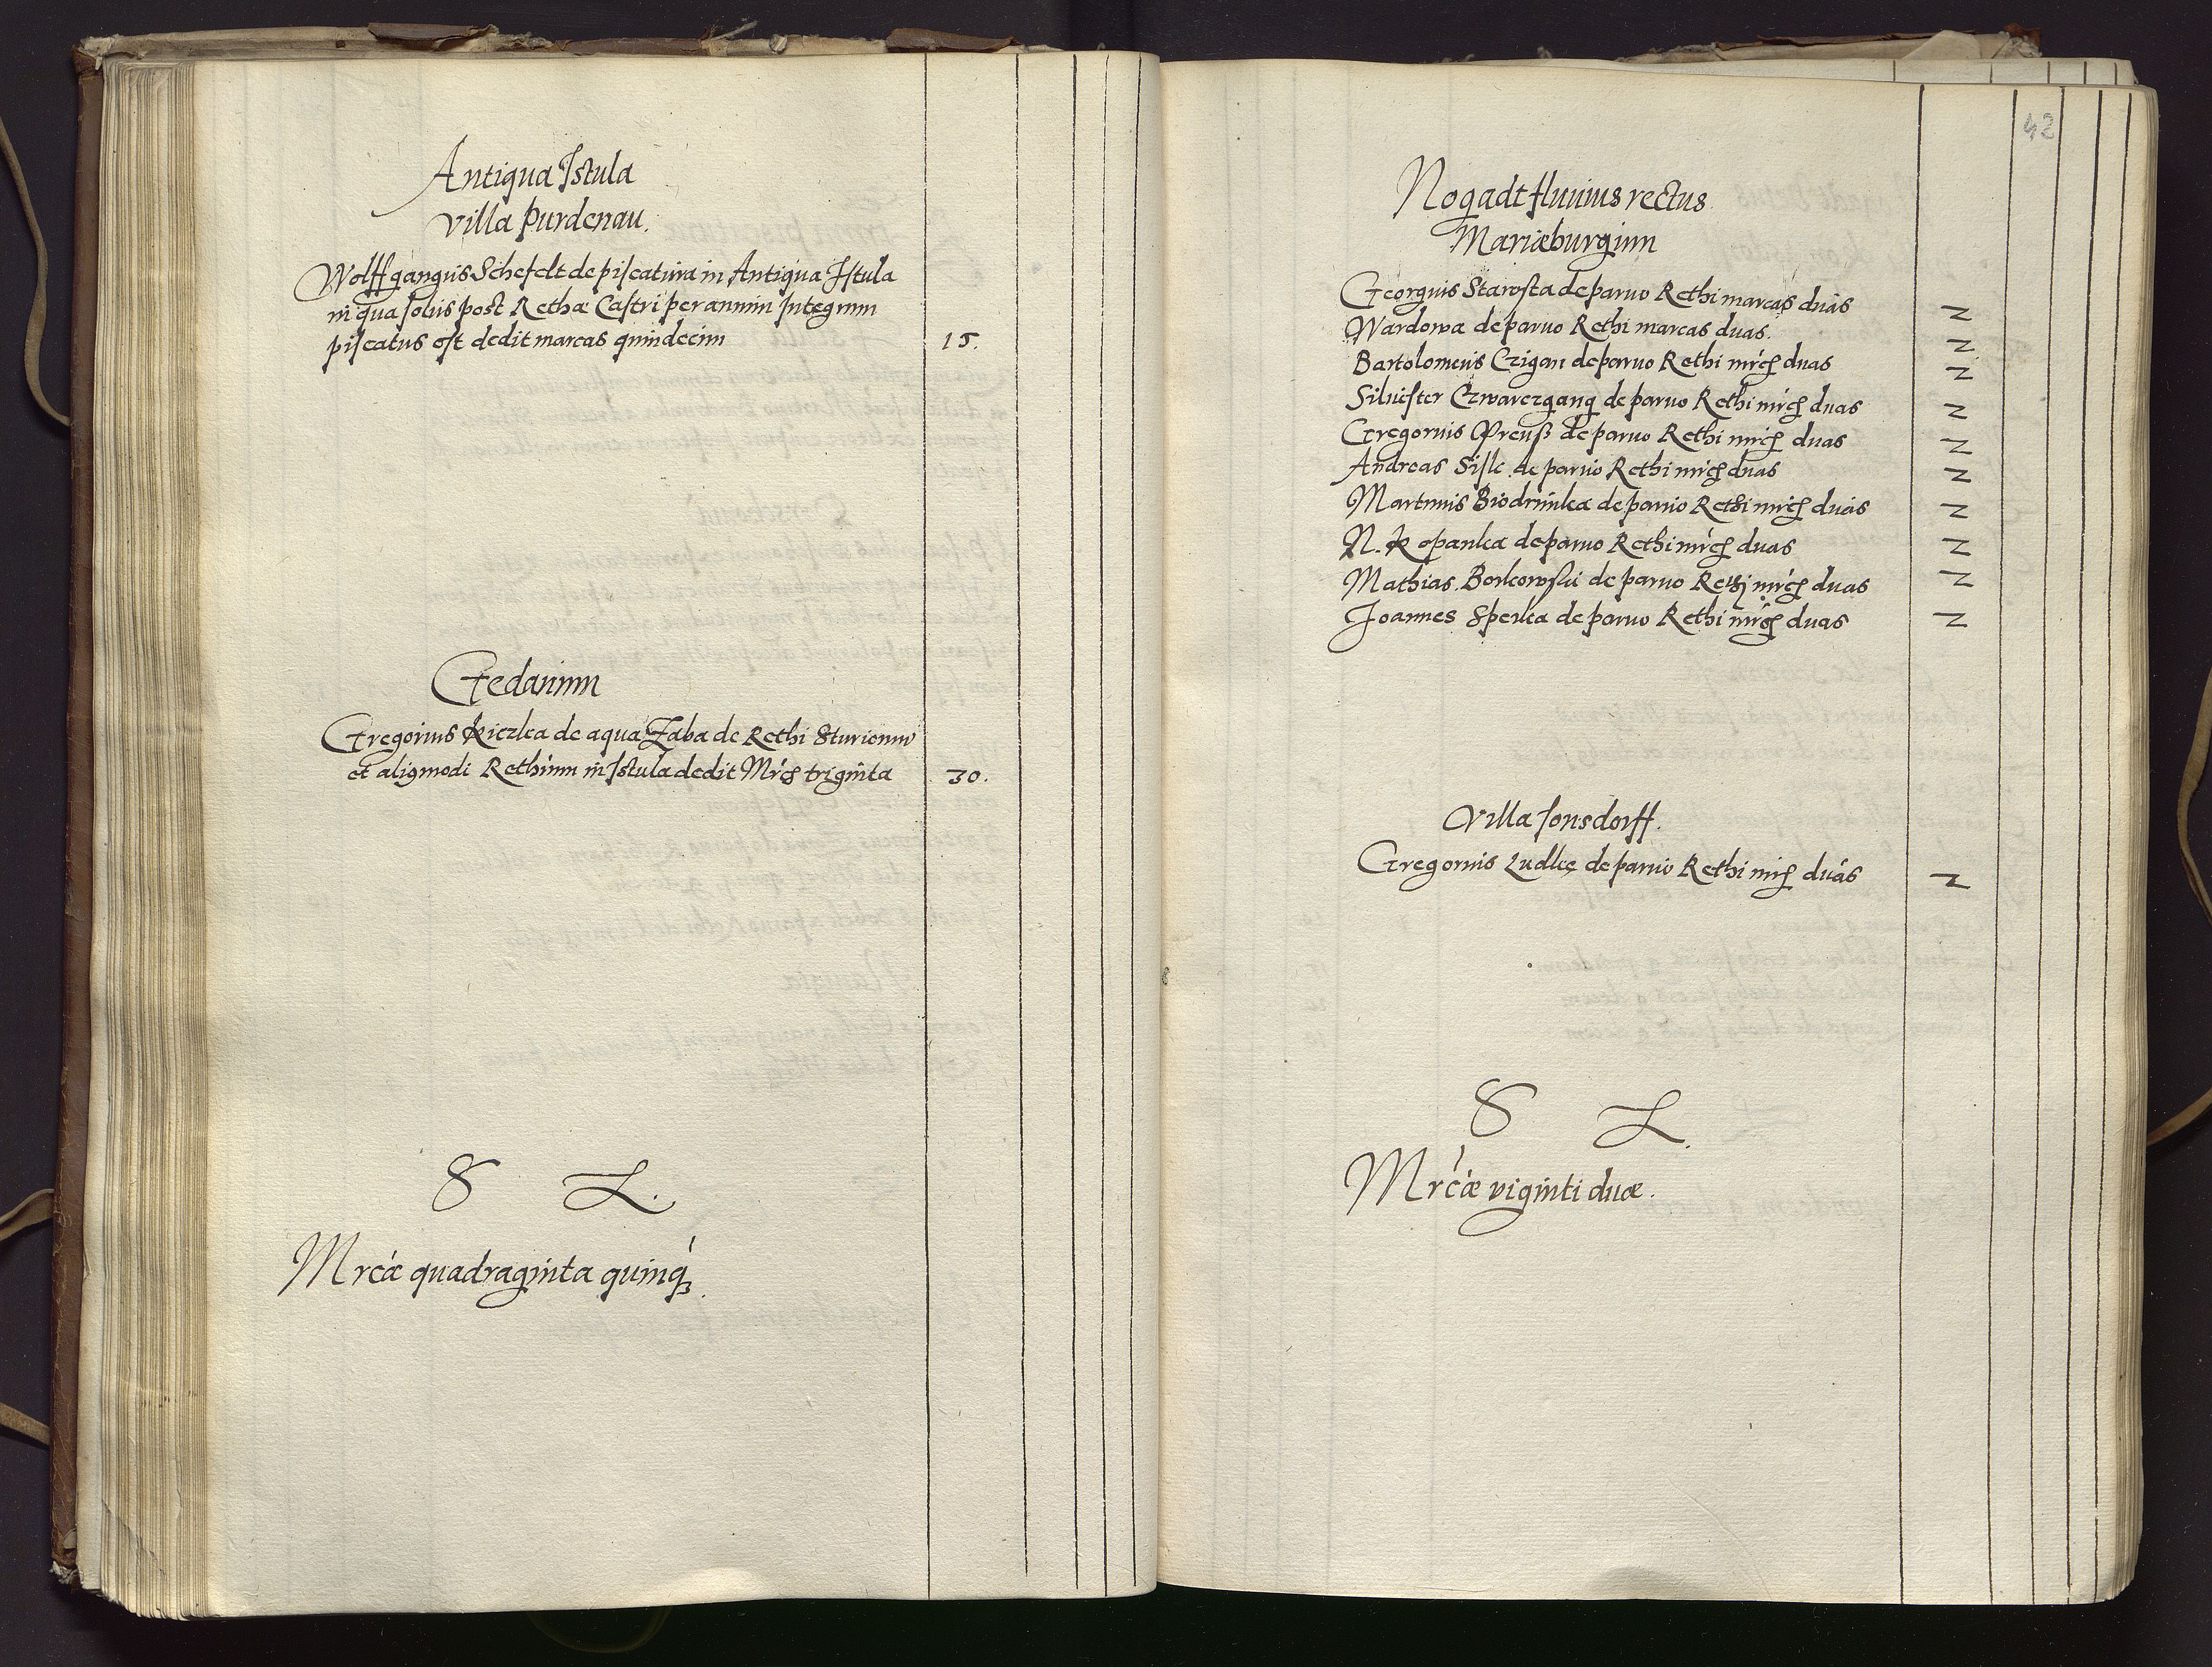 Antiqua Istula
villa Purdenau.
Wolffgangus Schefelt de piscatura in Antiqua Istula
in qua solus post Rethæ Castri per annum Integrum
piscatus est dedit marcas quindecim 15.
Gedanum
Gregorius Kiczka de aqua Zaba de Rethi Sturionum
et aliusmodi Rethium in Istula dedit Mrcs triginta 30.
S L.
Mrcæ quadraginta quinq3.
42
Nogadt fluuius rectus
Mariæburgum
Georgius Starosta de paruo Rethi marcas duas 2
Wardowa de paruo Rethi marcas duas. 2
Bartolomeus Czigan de paruo Rethi mrcs duas 2
Siluester Czwarczgang de paruo Rethi mrcs duas 2
Gregorius Preuß de paruo Rethi mrcs duas 2
Andreas Sisle de paruo Rethi mrcs duas 2
Martinus Biodrunka de paruo Rethi mrcs duas 2
N. Kopanka de paruo Rethi mrcs duas 2
Mathias Borkowski de paruo Rethi mrcs duas 2
Joannes Sperka de paruo Rethi mrcs duas 2
Villa Jonsdorff.
Gregorius Ludke de paruo Rethi mrcs duas 2
S L.
Mrcæ viginti duæ.